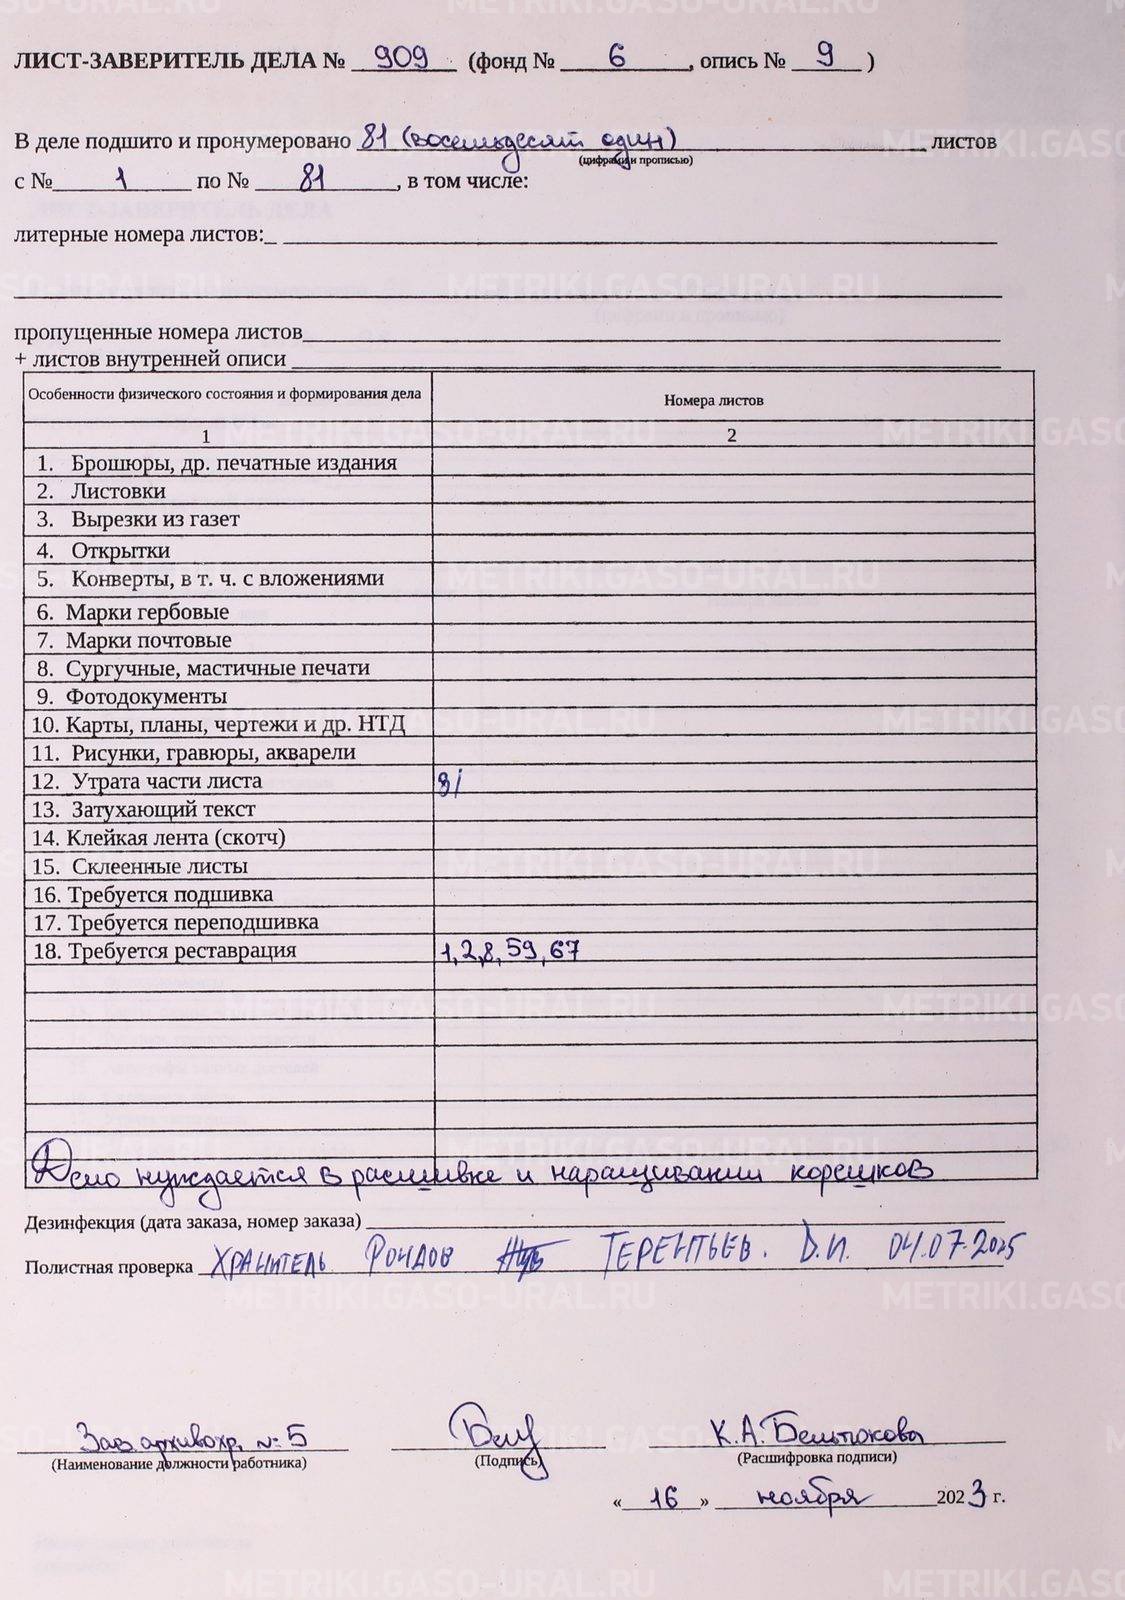 ЛИСТ-ЗАВЕРИТЕЛЬ ДЕЛА № 909 (фонд № 6, опись № 9)
В деле подшито и пронумеровано 81 (восемьдесят один) листов
(цифрами и прописью)
с № 1 по № 81, в том числе:
литерные номера листов:
пропущенные номера листов
+ листов внутренней описи
Особенности физического состояния и формирования дела Номера листов
1 2
1. Брошюры, др. печатные издания
2. Листовки
3. Вырезки из газет
4. Открытки
5. Конверты, в т. ч. с вложениями
6. Марки гербовые
7. Марки почтовые
8. Сургучные, мастичные печати
9. Фотодокументы
10. Карты, планы, чертежи и др. НТД
11. Рисунки, гравюры, акварели
12. Утрата части листа
13. Затухающий текст
14. Клейкая лента (скотч)
15. Склеенные листы
16. Требуется подшивка
17. Требуется переподшивка
18. Требуется реставрация 1, 2, 8, 59, 67
Дело нуждается в расшивке и наращивании корешков
Дезинфекция (дата заказа, номер заказа)
Полистная проверка Хранитель фондов Терентьев. Д.И. 04.07.2025
Зав. архивохр. № 5 К.А. Бельтюкова
(Наименование должности работника) (Подпись) (Расшифровка подписи)
« 16 » ноября 2023 г.
METRIKI.GASO-URAL.RU